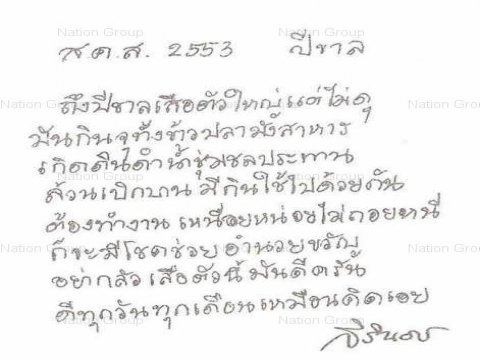 ส.ค.ส. 2553 ปีขาล
ถึงปีขาลเสือตัวใหญ่แต่ไม่ดุ
มันกินจุทั้งข้าวปลามังสาหาร
เกิดดินดำน้ำชุ่มชลประทาน
ล้วนเบิกบานมีกินใช้ไปด้วยกัน
ต้องทำงานเหนื่อยหน่อยไม่ถอยหนี
ก็จะมีโชคช่วยอำนวยขวัญ
อย่ากลัวเสือตัวนี้มันดีครัน
ดีทุกวันทุกเดือนเหมือนคิดเอย
สิรินธร
Nation Group